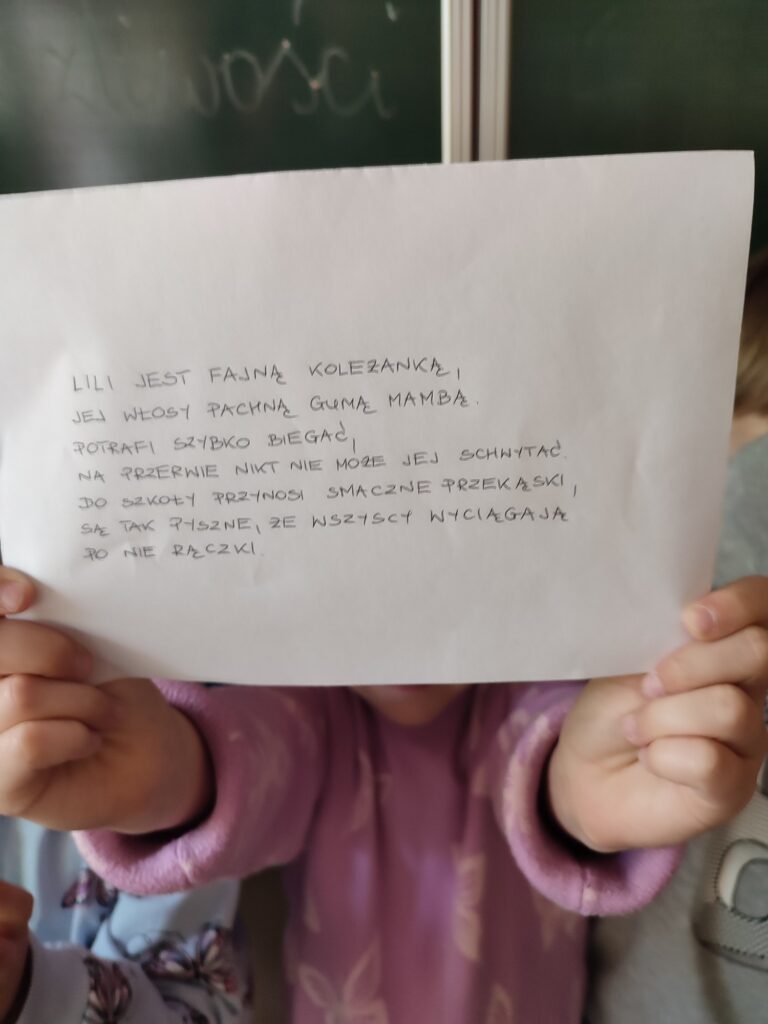 żliwości
LILI JEST FAJNĄ KOLEŻANKĄ,
JEJ WŁOSY PACHNĄ GUMĄ MAMBĄ.
POTRAFI SZYBKO BIEGAĆ,
NA PRZERWIE NIKT NIE MOŻE JEJ SCHWYTAĆ.
DO SZKOŁY PRZYNOSI SMACZNE PRZEKĄSKI,
SĄ TAK PYSZNE, ŻE WSZYSCY WYCIĄGAJĄ
PO NIE RĄCZKI.